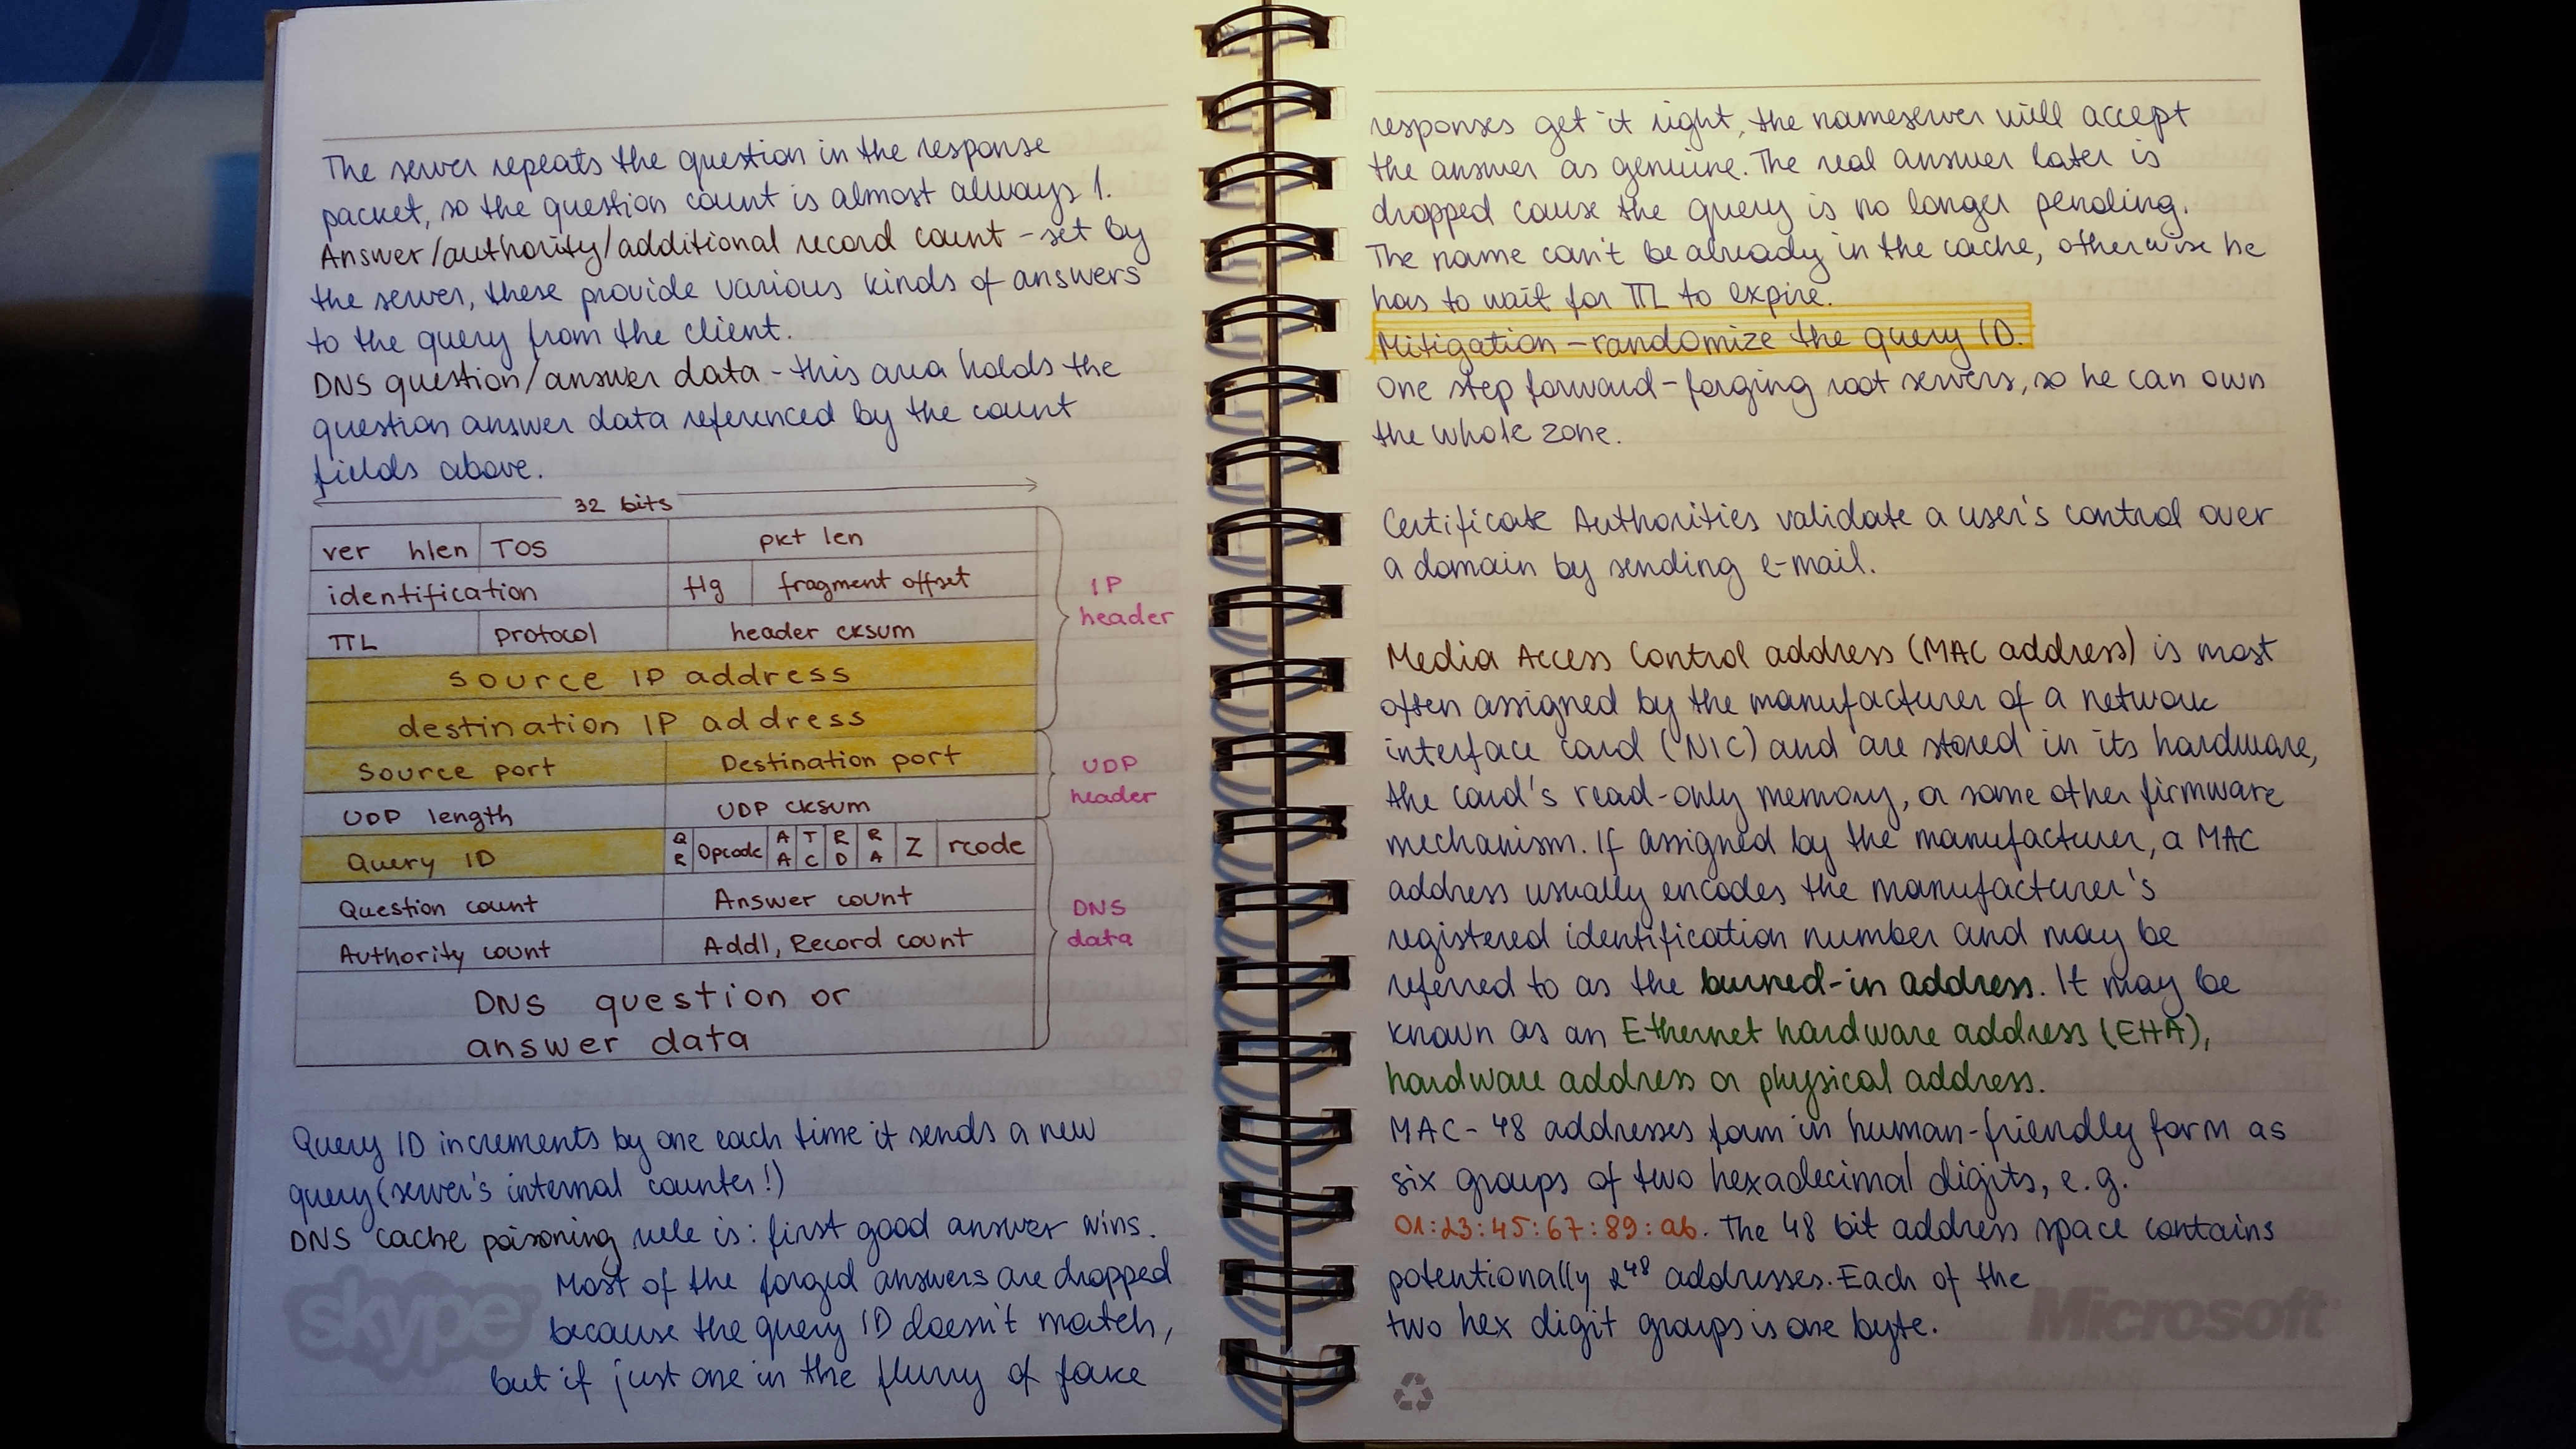 The server repeats the question in the response
packet, so the question count is almost always 1.
Answer/authority/additional record count - set by
the server, these provide various kinds of answers
to the query from the client.
DNS question/answer data - this area holds the
question answer data referenced by the count
fields above.
32 bits
ver hlen TOS pkt len
identification flg fragment offset
IP
header
TTL protocol header cksum
source IP address
destination IP address
Source port Destination port
UDP
header
UDP length UDP cksum
Query ID QR Opcode AA TC RD RA Z rcode
Question count Answer count
DNS
data
Authority count Addl, Record count
DNS question or
answer data
Query ID increments by one each time it sends a new
query (server's internal counter!)
DNS cache poisoning rule is: first good answer wins.
Most of the forged answers are dropped
because the query ID doesn't match,
but if just one in the flurry of fake
skype
responses get it right, the nameserver will accept
the answer as genuine. The real answer later is
dropped cause the query is no longer pending.
The name can't be already in the cache, otherwise he
has to wait for TTL to expire.
Mitigation - randomize the query ID.
One step forward - forging root servers, so he can own
the whole zone.
Certificate Authorities validate a user's control over
a domain by sending e-mail.
Media Access Control address (MAC address) is most
often assigned by the manufacturer of a network
interface card (NIC) and are stored in its hardware,
the card's read-only memory, or some other firmware
mechanism. If assigned by the manufacturer, a MAC
address usually encodes the manufacturer's
registered identification number and may be
referred to as the burned-in address. It may be
known as an Ethernet hardware address (EHA),
hardware address or physical address.
MAC-48 addresses form in human-friendly form as
six groups of two hexadecimal digits, e.g.
01:23:45:67:89:ab. The 48 bit address space contains
potentionally 2^48 addresses. Each of the
two hex digit groups is one byte.
Microsoft